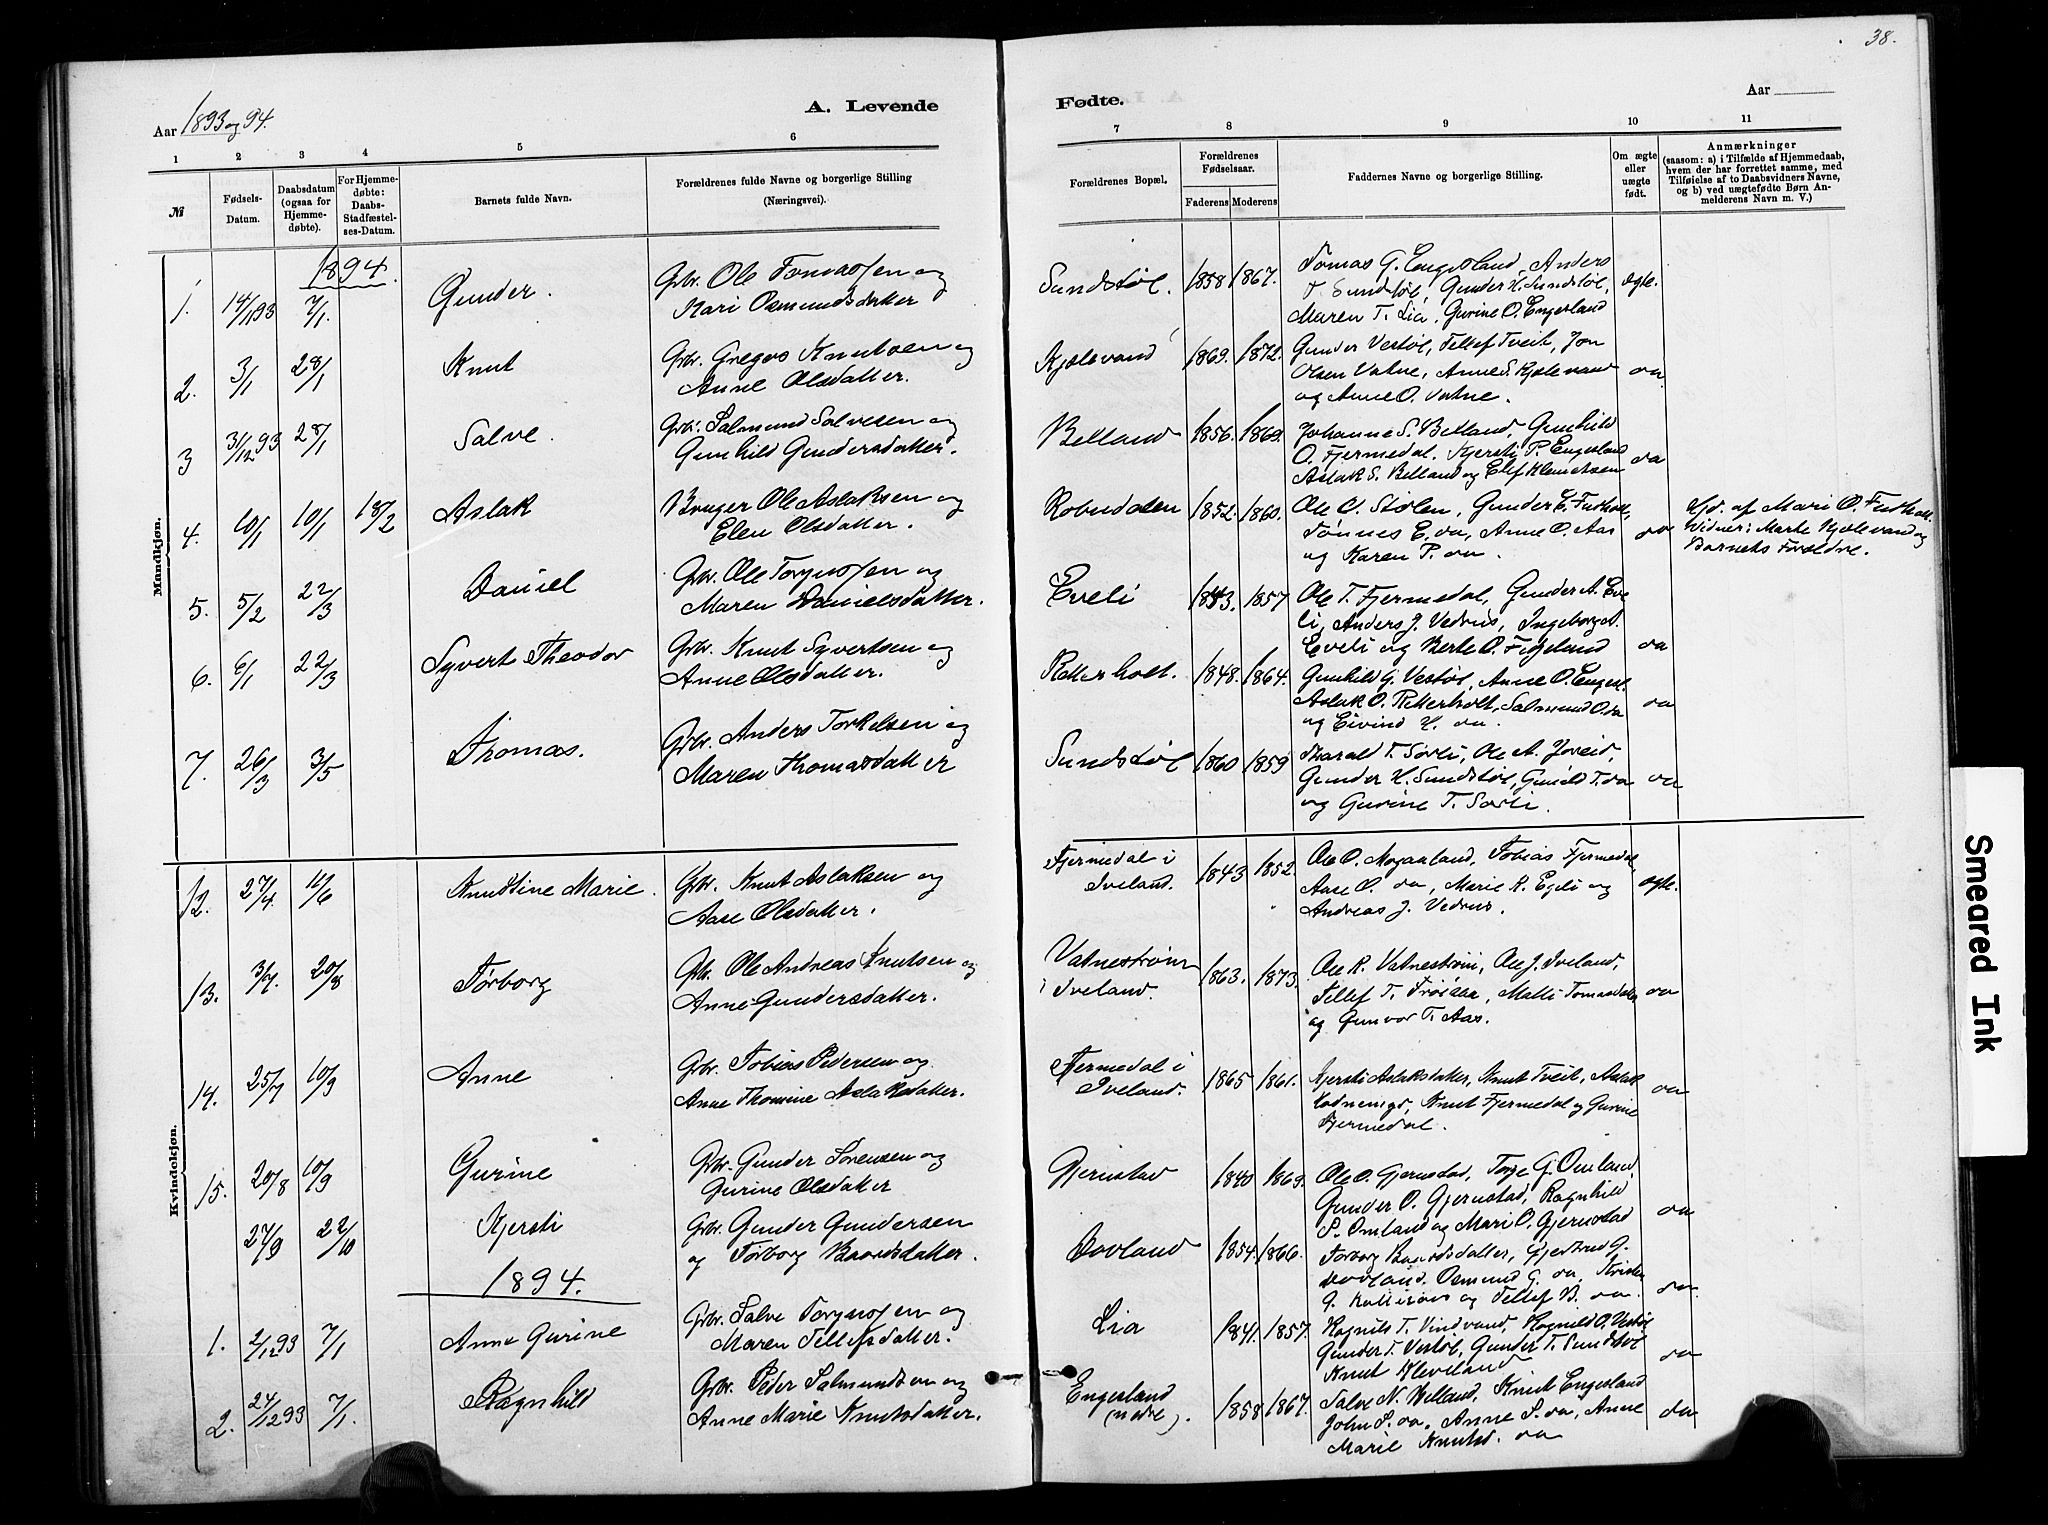 38.
Aar 1893 og 94.
A. Levende
Fødte.
Aar
1 2 3 4 5 6 7 8 9 10 11
№
Fødsels-
Datum.
Daabsdatum
(ogsaa for
Hjemme-
døbte).
For Hjemme-
døbte:
Daabs-
Stadfæstel-
ses-Datum.
Barnets fulde Navn.
Forældrenes fulde Navne og borgerlige Stilling
(Næringsvei).
Forældrenes Bopæl.
Forældrenes
Fødselsaar.
Faderens Moderens
Faddernes Navne og Stilling.
Om ægte
eller
uægte
født.
Anmærkninger
(saasom: a) i Tilfælde af Hjemmedaab,
hvem der har forrettet samme, med
Tilføielse af to Daabsvidners Navne,
og b) ved uægtefødte Børn An-
melderens Navn m. V.)
Mandkjøn.
1894.
1. 14/11 93 7/1. Gunder. Gbr. Ole Tomassen og
Mari Osmundsdatter
Sundstøl. 1858 1867. Tomas G. Engesland, Anders
T. Sundstøl, Gunder H. Sundstøl,
Maren T. Lia, Gurine O. Engesland
ægte.
2. 3/1 28/1 Knut Gbr. Gregos Knutsen og
Anne Olsdatter.
Kjølevand 1869. 1872. Gunder Vestøl, Tellef Tveit, Jon
Olsen Vatne, Anne S. Kjølevand
og Anne O. Vatne.
do
3 3/12 93 28/1 Salve. Gbr. Salmund Salvesen og
Gunhild Gundersdatter.
Belland 1856. 1869. Johanne S. Belland, Gunhild
O. Fjermedal, Kjersti P. Engesland
Aslak S. Belland og Elef Klemetsen
do
4. 10/1 10/1 18/2 Aslak Bruger Ole Aslaksen og
Elen Olsdatter.
Robudalen 1852. 1860. Ole O. Stølen, Gunder E. Fritholt,
Tønnes E. do, Anne O. Aas
og Karen P. do.
do
Hjd. af Mari O. Fritholt.
Vidner: Marte Kjølevand og
Barnets Forældre.
5. 5/2 22/3 Daniel Gbr. Ole Torjussen og
Maren Danielsdatter.
Eveli 1843. 1857 Ole T. Fjermedal, Gunder A. Eve-
li, Anders J. Vedrus, Ingeborg A.
Eveli og Berte O. Figeland
do
6. 6/1 22/3 Syvert Theodor Gbr. Knut Syvertsen og
Anne Olsdatter.
Retterholt. 1848. 1864. Gunhild G. Vestøl, Anne O. Engesl.
Aslak O. Retterholt, Salmund O. do
og Eivind K. do.
do
7. 26/3 3/5 Thomas. Gbr. Anders Torkelsen og
Maren Thomasdatter
Sundstøl 1860 1859 Tharald T. Sørli, Ole A. Jøreid,
Gunder H. Sundstøl, Gunild T. do
og Gurine T. Sørli.
do
Kvindekjøn.
12. 27/4. 11/6 Knudtine Marie. Gbr. Knut Aslaksen og
Aase Olsdatter.
Fjermedal i
Iveland. 1843 1852. Ole O. Mogaaland, Tobias Fjermedal,
Aase O. do, Marie K. Egeli og
Andreas J. Vedrus.
ægte.
13. 3/7. 20/8 Tørborg Gbr. Ole Andreas Knutsen og
Anne Gundersdatter.
Vatnestrøm
i Iveland. 1863. 1873. Ole K. Vatnestrøm, Ole J. Iveland,
Tellef T. Frøisaa, Malli Tomasdatter
og Gunvor T. Aas.
do
14. 25/7 10/9 Anne Gbr. Tobias Pedersen og
Anne Thomine Aslaksdatter.
Fjermedal i
Iveland. 1865 1861. Kjersti Aslaksdatter, Knut Tveit, Aslak
Kadnenigs, Knut Fjermedal og Gurine
Fjermedal.
do
15. 20/8 10/9 Gurine Gbr. Gunder Sørensen og
Gurine Olsdatter
Gjerustad 1840 1869. Ole O. Gjerustad, Torje G. Omland,
Gunder O. Gjerustad, Ragnhild
S. Omland og Mari O. Gjerustad
do
27/9 22/10 Kjersti Gbr. Gunder Gundersen
og Tørborg Baardsdatter.
Dovland 1854. 1866. Torborg Baardsdatter, Gjertrud G.
Dovland, Osmund G. do, Kristen
G. og Tellef B. do.
do.
1894.
1. 2/12 93 7/1 Anne Gurine Gbr. Salve Torjussen og
Maren Tellefsdatter.
Lia 1841. 1857. Ragnild T. Vindvand, Ragnild O. Vestøl
Gunder T. Vestøl, Gunder T. Sundstøl
Knut Kleveland
do
2. 24/12 93 7/1. Ragnhild Gbr. Peder Salmundsen og
Anne Marie Knutsdatter.
Engesland
(nedre). 1858 1867. Salve N. Belland, Knut Engesland
John S. do, Anne S. do, Anne
Marie Knutsd. do
do
Smeared Ink